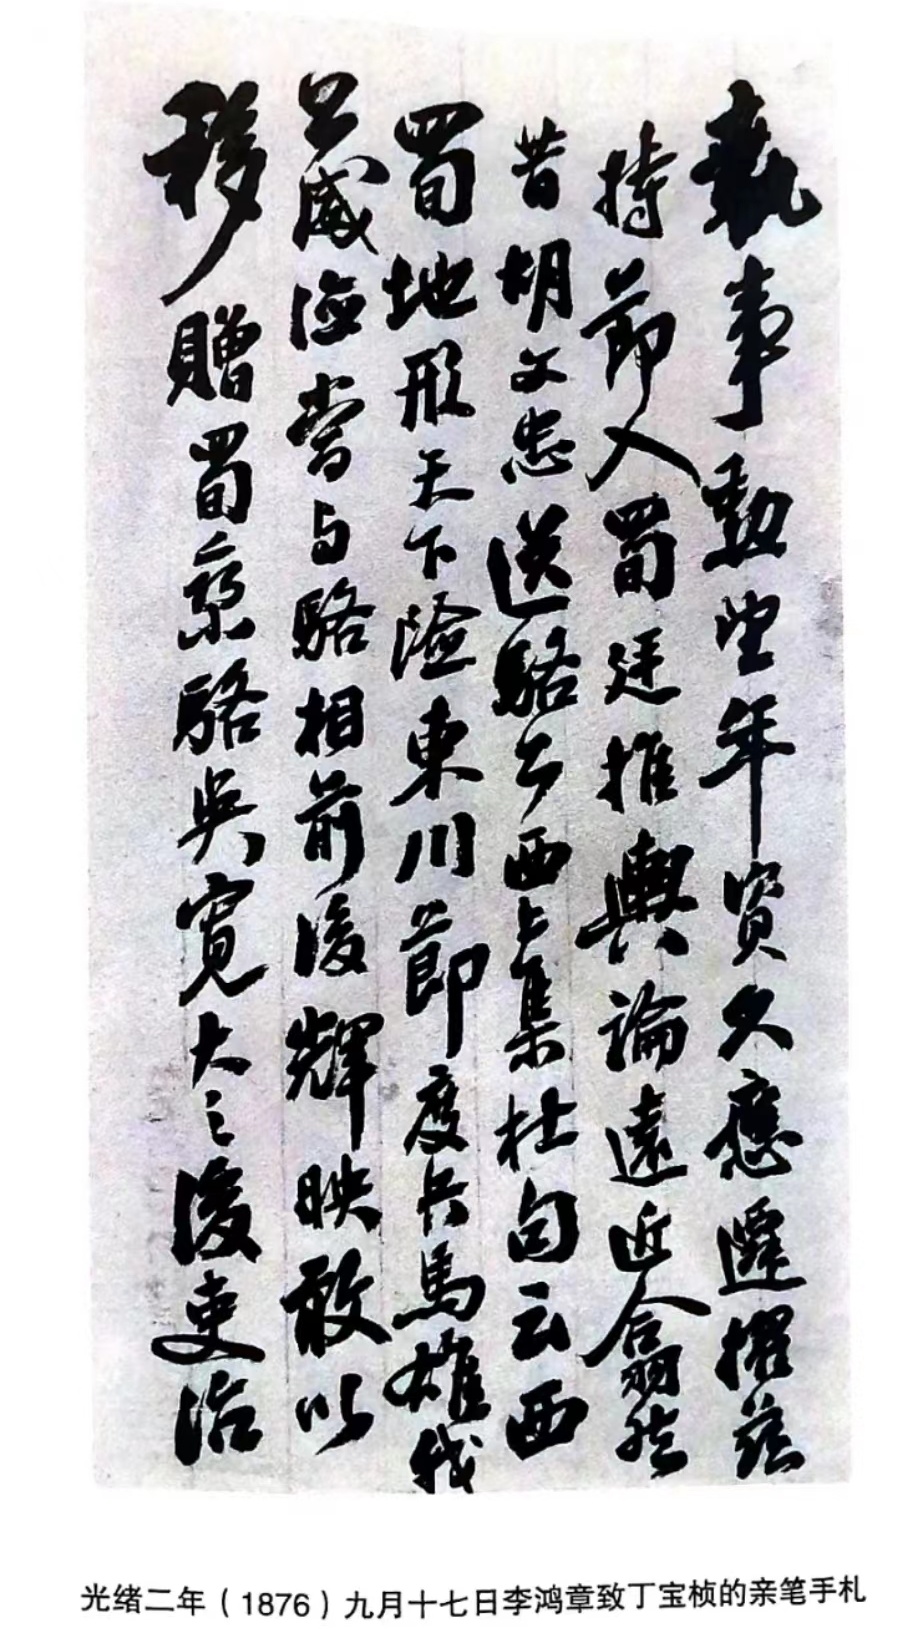 執事勳望年資久應遷擢茲
持節入蜀廷推輿論遠近翕然
昔胡文忠送駱公西上集杜句云西
蜀地形天下險東川節度兵馬雄我
公威德當与駱相前後輝映敢以
移贈蜀承駱吳寬大之後吏治
光绪二年（1876）九月十七日李鸿章致丁宝桢的亲笔手札